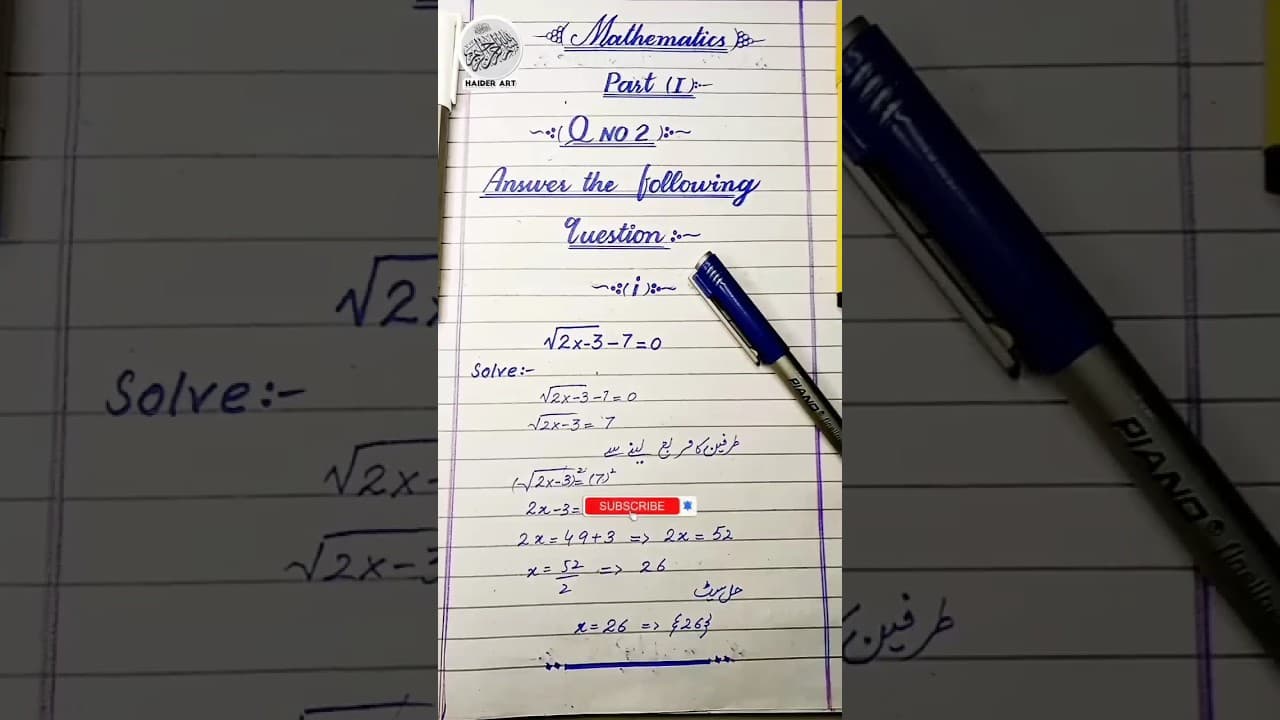 HAIDER ART
Mathematics
Part (I):-
(Q NO 2):~
Answer the following
Question:~
(i):~
√2x-3-7=0
Solve:-
√2x-3-7=0
√2x-3= 7
طرفین کا مربع لینے سے
(√2x-3)²=(7)²
2x-3=
SUBSCRIBE
2x=49+3 => 2x=52
x=52/2 => 26
حل سیٹ
x=26 => {26}
PIANO
√2x
Solve:-
√2x-
√2x-3
PIANO
fineliner
طرفین